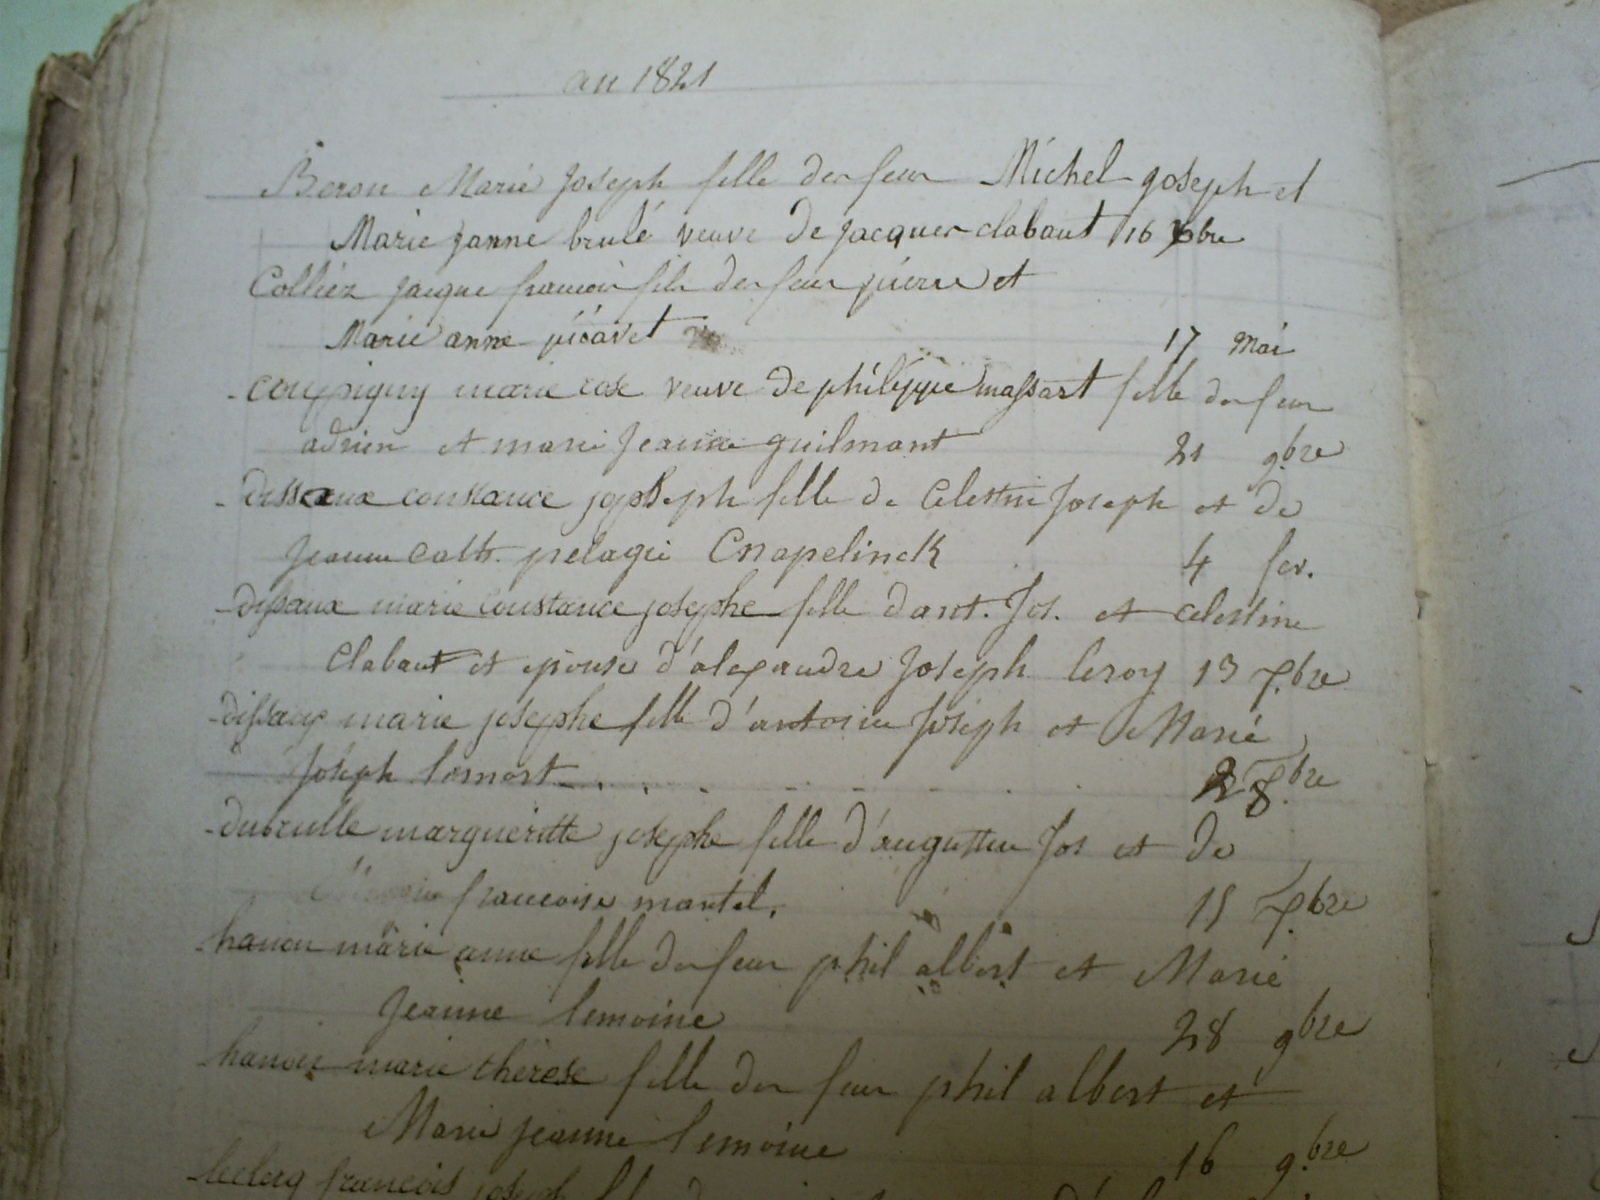 an 1821
Beron Marie Joseph fille des feux Michel joseph et
Marie janne brulé veuve de jacques clabaut 16 Xbre
Colliez jacque francois fils des feux pierre et
Marie anne piéavet 17 Mai
coupigny marie rose veuve de philippe massart fille des feux
adrien et marie jeanne guilmant 21 9bre
dissaux constance joseph fille de Celestin Joseph et de
jeanne cath. pelagie Cnapelinck 4 fev.
dissaux marie constance josephe fille d'ant. Jos. et celestine
Clabaut et epouse d'alexandre joseph leroy 13 7.bre
dissaux marie josephe fille d'antoine joseph et Marie
Joseph lomort 28 7.bre
dubrulle margueritte josephe fille d'augustin Jos et de
francoise mantel. 15 7.bre
hanon marie anne fille des feux phil albert et Marie
Jeanne lemoine 28 9bre
hanon marie thérese fille des feux phil albert et
Marie jeanne lemoine 16 9.bre
leclerq francois joseph